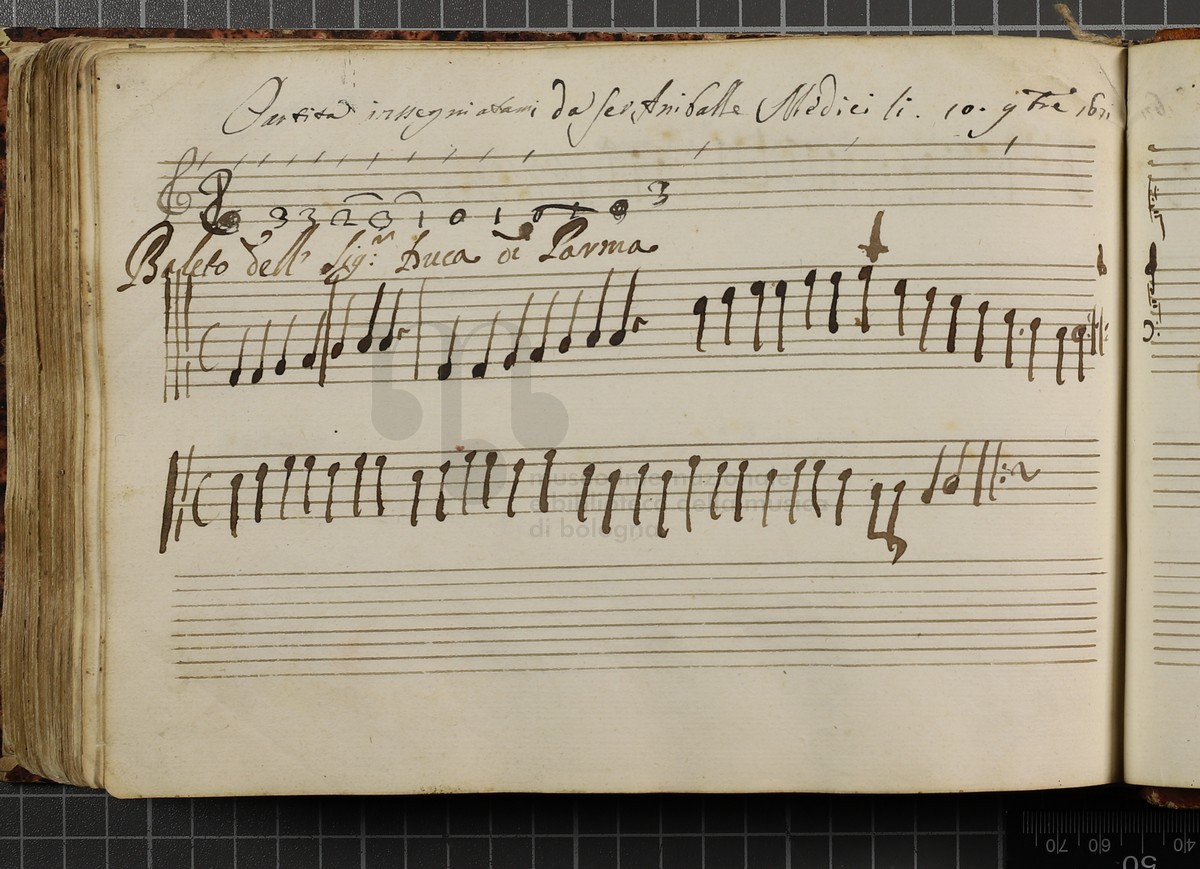 Partita inssegniatami da ser Aniballe Medici li. 10. 9bre 16
3 3 2 3 1 0 1 3
Baleto dell Sig.r Duca di Parma
museo internazionale
e biblioteca della musica
di bologna
70 60 50 40